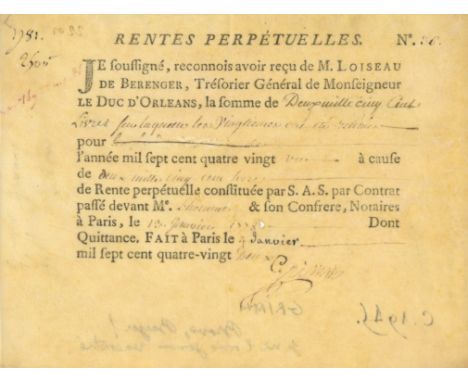 1781.
2500
RENTES PERPÉTUELLES. N°. 38.
JE soussigné, reconnois avoir reçu de M. LOISEAU
DE BERENGER, Trésorier Général de Monseigneur
LE DUC D'ORLEANS, la somme de Deux mille cinq Cent
Livres sur laquelle les Vingtiemes ont été retenus
pour
l'année mil sept cent quatre vingt à cause
de deux mille cinq cent livres
de Rente perpétuelle constituée par S. A. S. par Contrat
passé devant Me. & son Confrere, Notaires
à Paris, le 13. Janvier Dont
Quittance. FAIT à Paris le 9 Janvier
mil sept cent quatre-vingt Deux
GRIMM
C. 1945